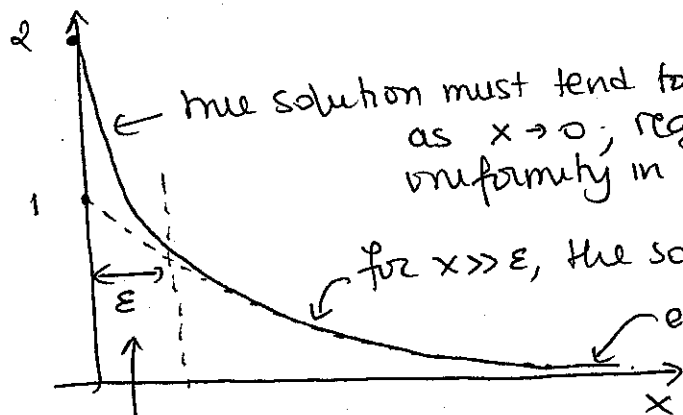 2
true solution must tend to
as x → 0; reg
uniformity in
1
for x >> ε, the so
ε
e
x